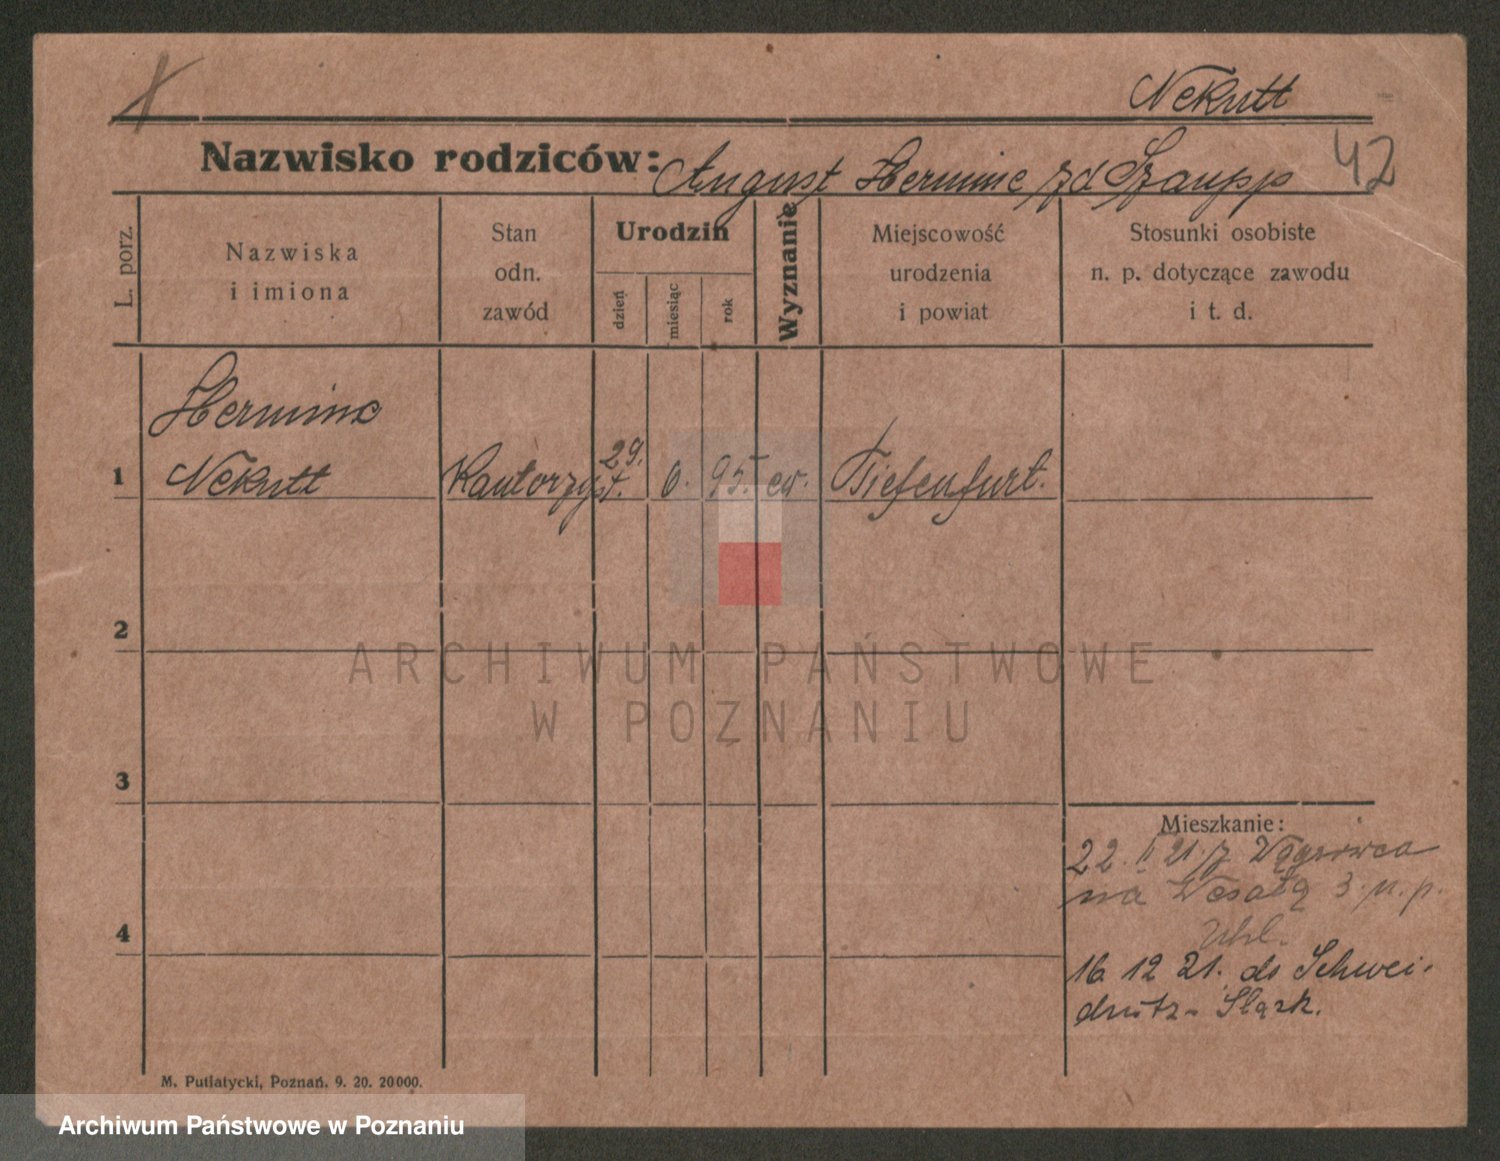 Nekutt
Nazwisko rodziców: August Hermine zd Szaupp
42
L. porz.
Nazwiska
i imiona
Stan
odn.
zawód
Urodzin
dzień
miesiąc
rok
Wyznanie
Miejscowość
urodzenia
i powiat
Stosunki osobiste
n. p. dotyczące zawodu
i t. d.
Hermine
1 Nekutt Kantorzyst. 29. 6. 95. ew. Tiefenfurt.
2
3
4
Mieszkanie:
22. II 21. z Wągrowca
na Wesołą 3. u. p.
Uhl.
16 12 21. do Schwei-
dnitz- Śląsk.
M. Putiatycki, Poznań. 9. 20. 20000.
ARCHIWUM PAŃSTWOWE
W POZNANIU
Archiwum Państwowe w Poznaniu